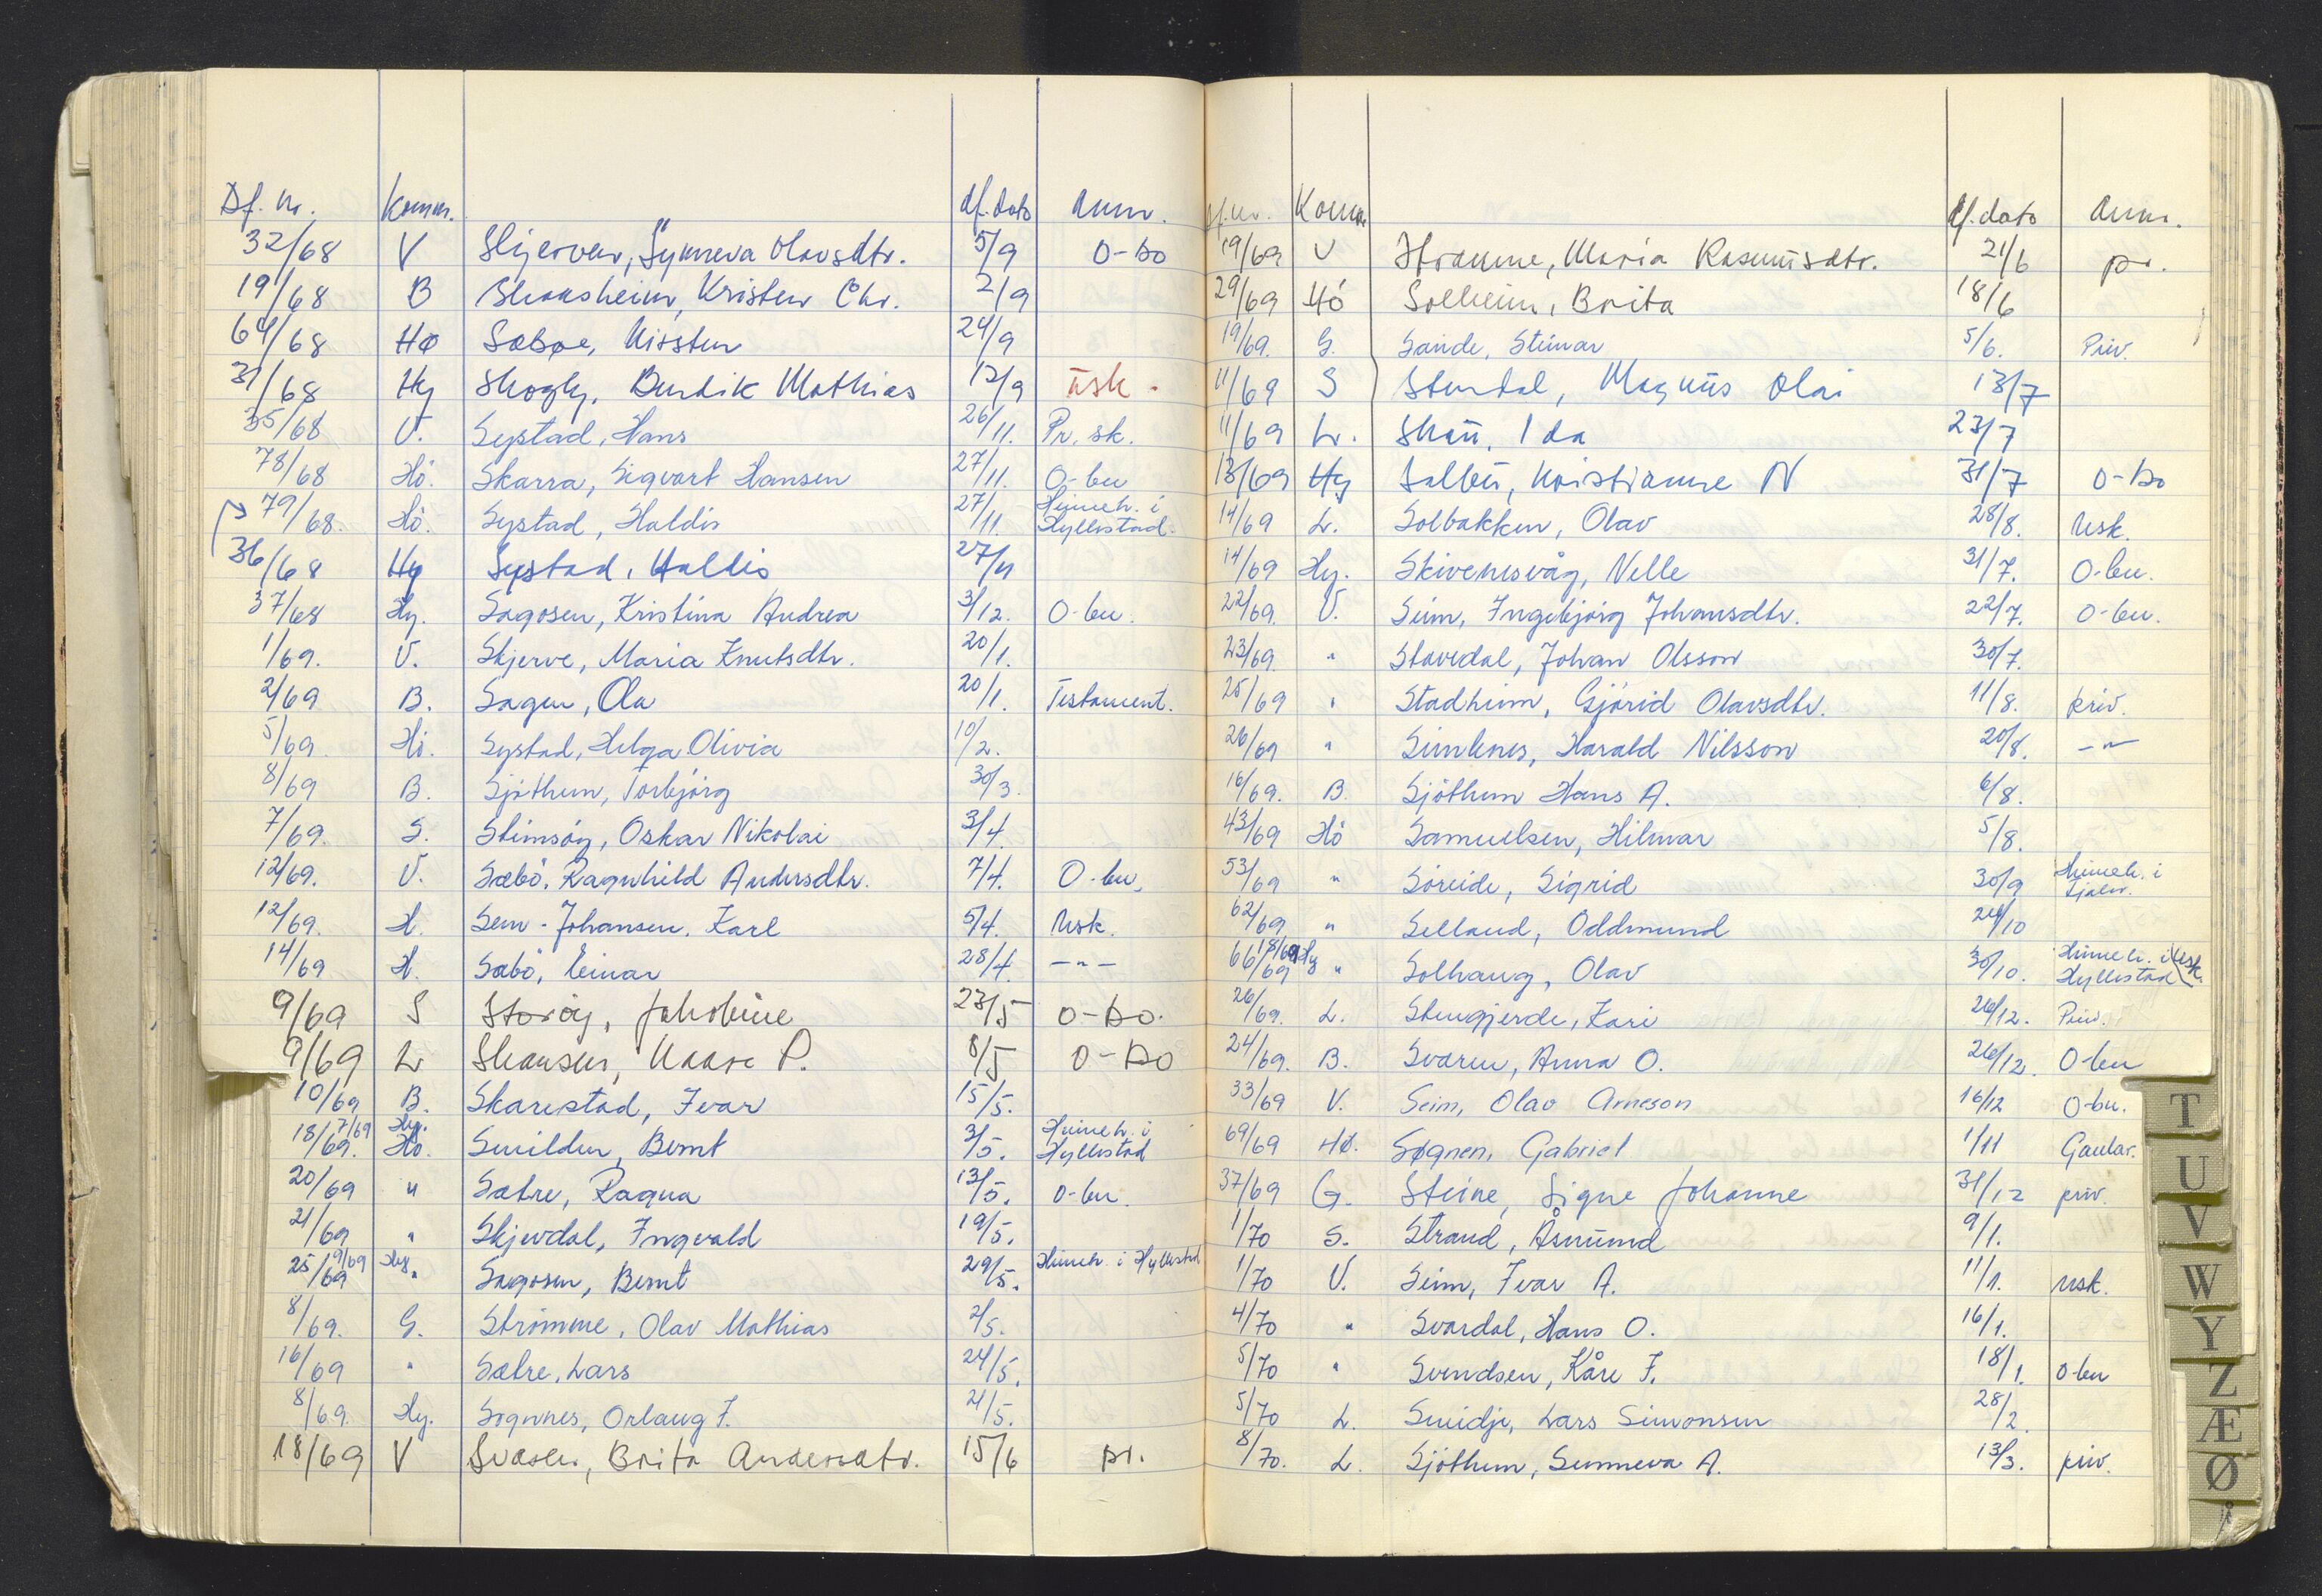 Df. nr. Komm. df. dato Anm.
32/68 V Skjerven, Synneva Olavsdtr. 5/9 O-bo
19/68 B Skaasheim, Kristen Chr. 2/9
64/68 Hø Sæbøe, Kirsten 24/9
31/68 Hy Skogly, Bendik Mathias 12/9 usk.
35/68 V. Systad, Hans 26/11. Pr. sk.
78/68 Hö. Skarra, Sigvart Hansen 27/11. O-bu
79/68. Hö. Systad, Haldis 27/11. Heimeh. i Hyllestad.
36/68 Hy Systad, Halldis 27/11
37/68 Hy. Sagosen, Kristina Andrea 3/12. O-bu.
1/69. V. Skjerve, Maria Knutsdtr. 20/1.
2/69 B. Sagen, Ola 20/1. Testament.
5/69 Hö. Systad, Helga Olivia 10/2.
8/69 B. Sjöthun, Torbjörg 30/3.
7/69. S. Steimsöy, Oskar Nikolai 3/4.
12/69. V. Sæbö, Ragnhild Andersdtr. 7/4. O-bu.
12/69. H. Sem-Johansen, Karl 5/4. Usk.
14/69 H. Sæbö, Einar 28/4. -"-
9/69 S Storöy, Jakobine 23/5 O-bo.
9/69 L Skansen, Kaare P. 8/5 O-bo
10/69 B. Skarestad, Ivar 15/5.
18/69. 7/69 Hy. Hö. Smilden, Bernt 3/5. Heimeh. i Hyllestad
20/69 " Sætre, Ragna 13/5. O-bu.
21/69 " Skjerdal, Ingvald 19/5.
25/69 9/69 Hy. " Sagosen, Bernt 29/5. Heimeh. i Hyllestad
8/69. G. Strömme, Olav Mathias 2/5.
16/69 " Sætre, Lars 24/5.
8/69. Hy. Sognnes, Orlaug I. 21/5.
18/69 V Svæsen, Brita Andersdtr. 15/6 pr.
Df. nr. Komm. df. dato Anm.
19/69 V Stramme, Maria Rasmusdtr. 21/6 pr.
29/69 Hö Solheim, Brita 18/6
19/69. G. Sande, Steinar 5/6. Priv.
11/69 S Stendal, Magnus Olai 13/7
11/69 L. Skau, Ida 23/7
13/69 Hy Salbu, Kristianne N 31/7 O-bo
14/69 L. Solbakken, Olav 28/8. Usk.
14/69 Hy. Skivenesvåg, Nelle 31/7. O-bu.
22/69. V. Seim, Ingebjörg Johansdtr. 22/7. O-bu.
23/69. " Stavedal, Johan Olsson 30/7.
25/69 " Stadheim, Gjörid Olavsdtr. 11/8. priv.
26/69 " Simlenes, Harald Nilsson 20/8. -"-
16/69. B. Sjöthun Hans A. 6/8.
43/69 Hö Samuelsen, Hilmar 5/8.
53/69 " Söreide, Sigrid 30/9 Heimeh. i
62/69 " Selland, Oddmund 24/10
66/69 18/69 Hy " Solhaug, Olav 30/10. Heimeh. i Hyllestad Usk.
26/69. L. Stengjerde, Kari 26/12. Priv.
24/69. B. Svaren, Anna O. 26/12. O-bu
33/69 V. Seim, Olav Arneson 16/12 O-bu.
69/69 HØ. Søgnen, Gabriel 1/11 Gaular.
37/69 G. Steine, Signe Johanne 31/12 priv.
1/70 S. Strand, Åsmund 9/1.
1/70 V. Seim, Ivar A. 11/1. usk.
4/70 " Svardal, Hans O. 16/1.
5/70 " Svendsen, Kåre F. 18/1. O-bu
5/70 L. Smidje, Lars Simonsen 28/2.
8/70. L. Sjöthun, Sunneva A. 13/3. priv.
T
U
V
W
Y
Z
Æ
Ø
Å